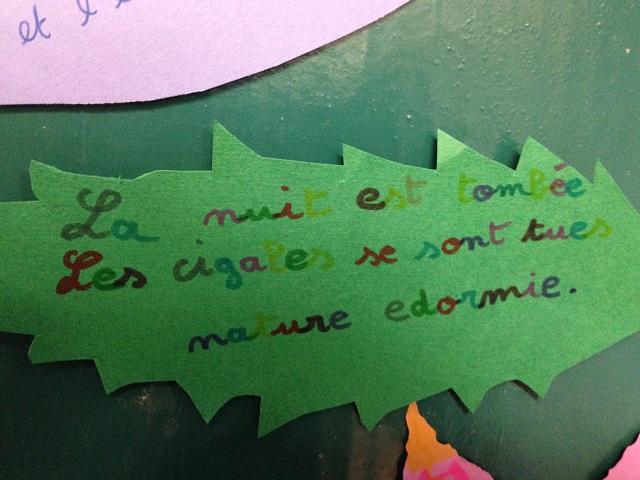 et l'
La nuit est tombée
Les cigales se sont tues
nature edormie.